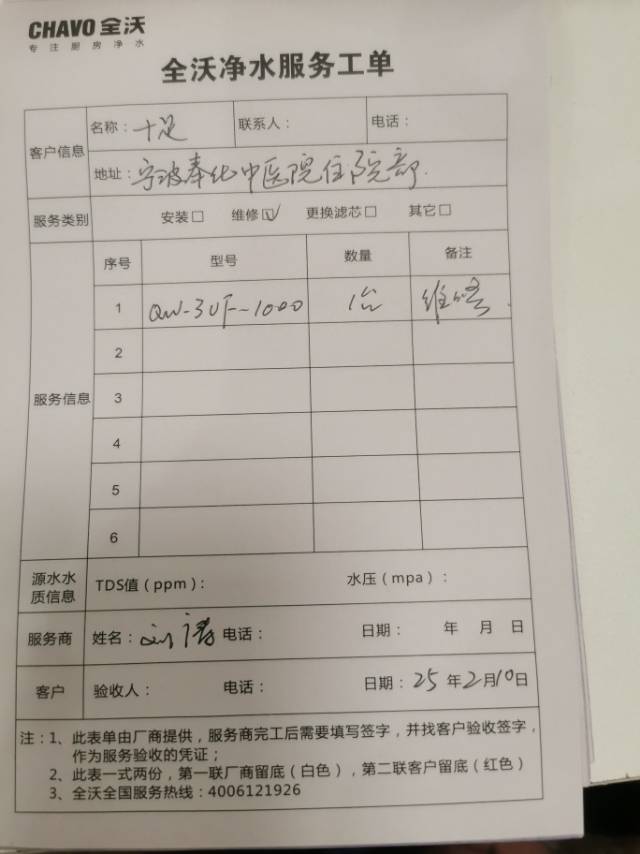 CHAVO全沃
专注厨房净水
全沃净水服务工单
客户信息 名称：十足 联系人： 电话：
地址：宁波奉化中医院住院部
服务类别 安装□ 维修☑ 更换滤芯□ 其它□
服务信息
序号 型号 数量 备注
1 QW-3UF-1000 1台 维修
2
3
4
5
6
源水水质信息 TDS值（ppm）： 水压（mpa）：
服务商 姓名：刘 电话： 日期： 年 月 日
客户 验收人： 电话： 日期：25年2月10日
注：1、此表单由厂商提供，服务商完工后需要填写签字，并找客户验收签字，
作为服务验收的凭证；
2、此表一式两份，第一联厂商留底（白色），第二联客户留底（红色）
3、全沃全国服务热线：4006121926